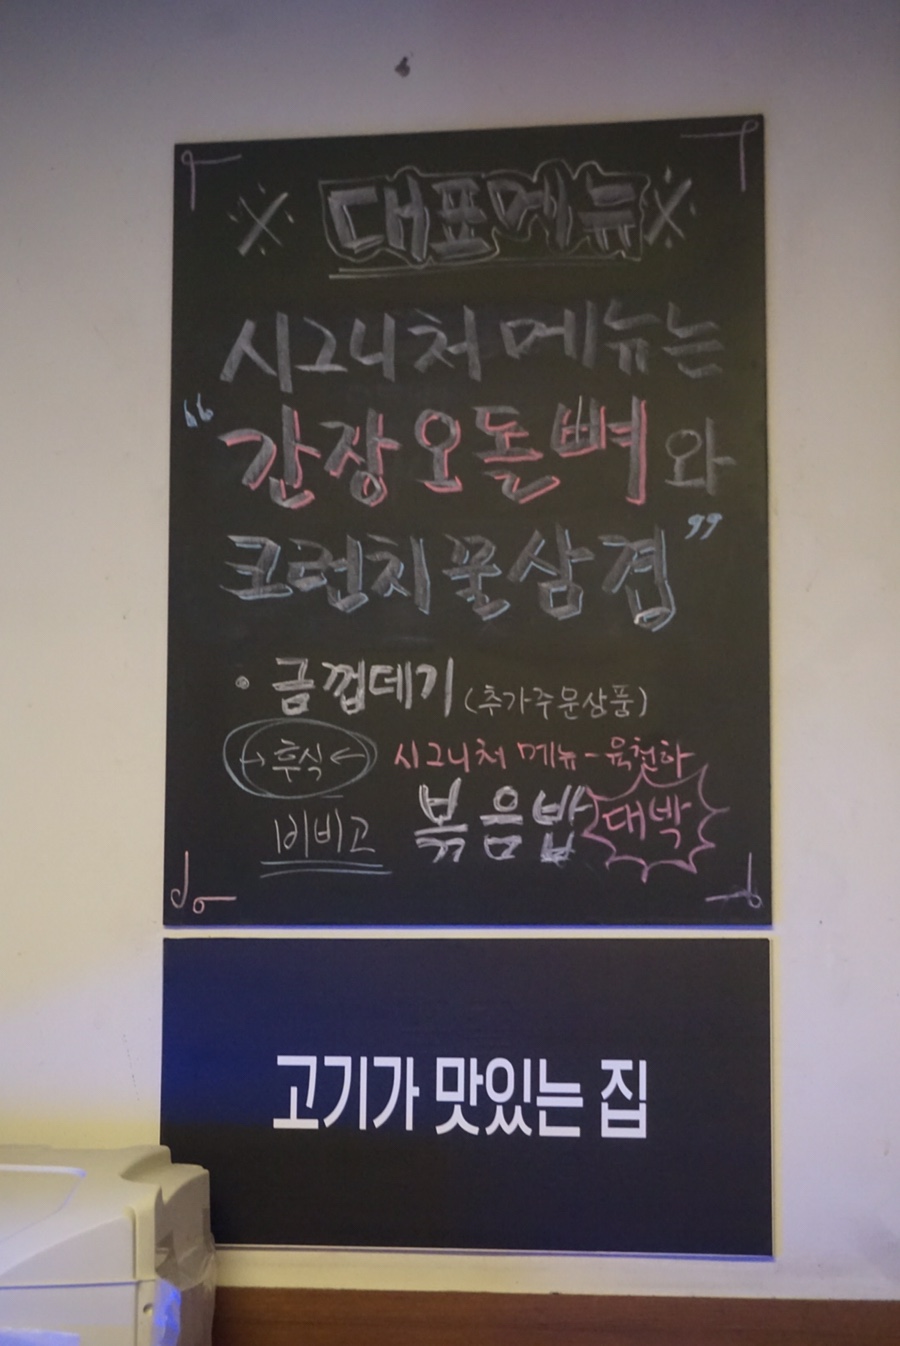 ※ 대표메뉴 ※
시그니처 메뉴는
“간장오돌뼈와
크런치꿀삼겹”
• 금껍데기 (추가주문상품)
→후식← 시그니처 메뉴-육천하
비비고 볶음밥 대박
고기가 맛있는 집